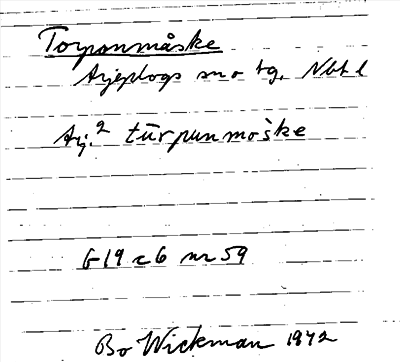 Torponmåske
Arjeplogs sn o tg. Nbt l
Arj.2 tūrpunmoške
G 19 c 6 nr 59
Bo Wickman 1972